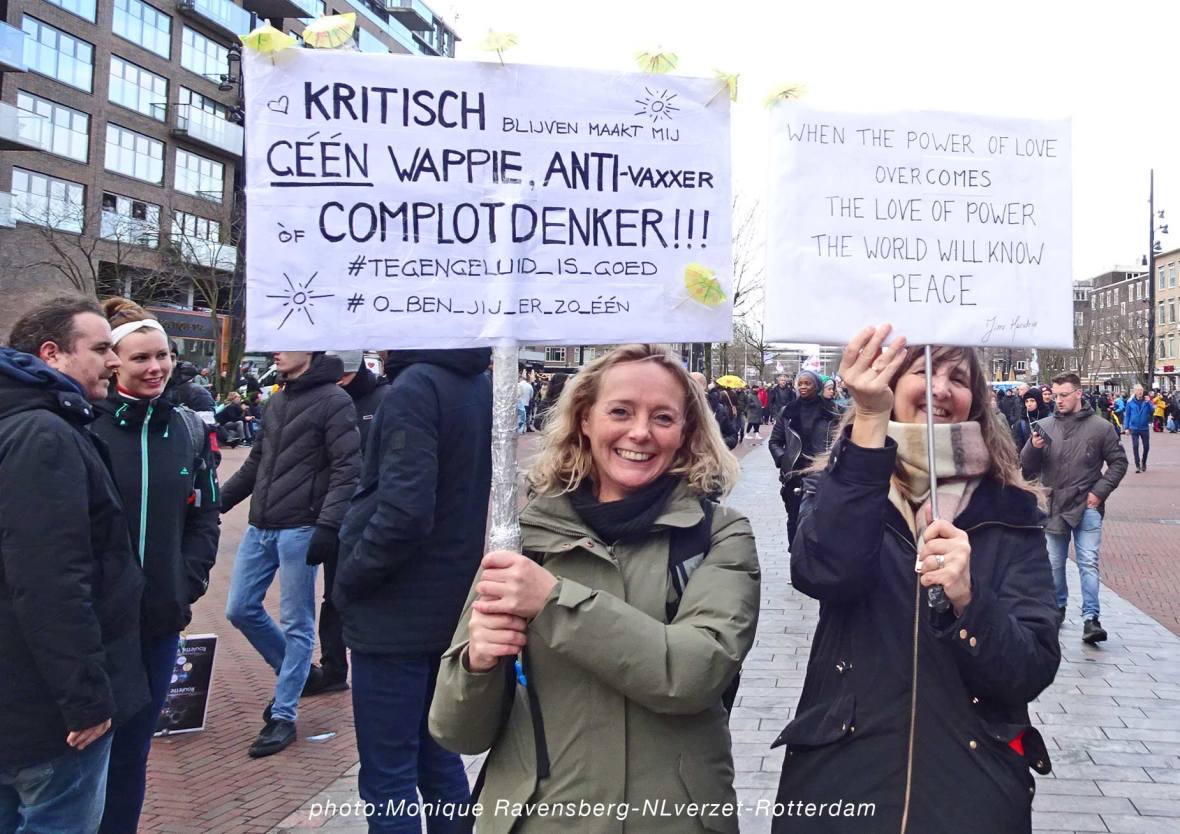 KRITISCH BLIJVEN MAAKT MIJ
GÉÉN WAPPIE, ANTI-VAXXER
ÒF COMPLOTDENKER!!!
#TEGENGELUID_IS_GOED
#O_BEN_JIJ_ER_ZO_ÉÉN
WHEN THE POWER OF LOVE
OVERCOMES
THE LOVE OF POWER
THE WORLD WILL KNOW
PEACE
Jimi Hendrix
Roulette
photo:Monique Ravensberg-NLverzet-Rotterdam